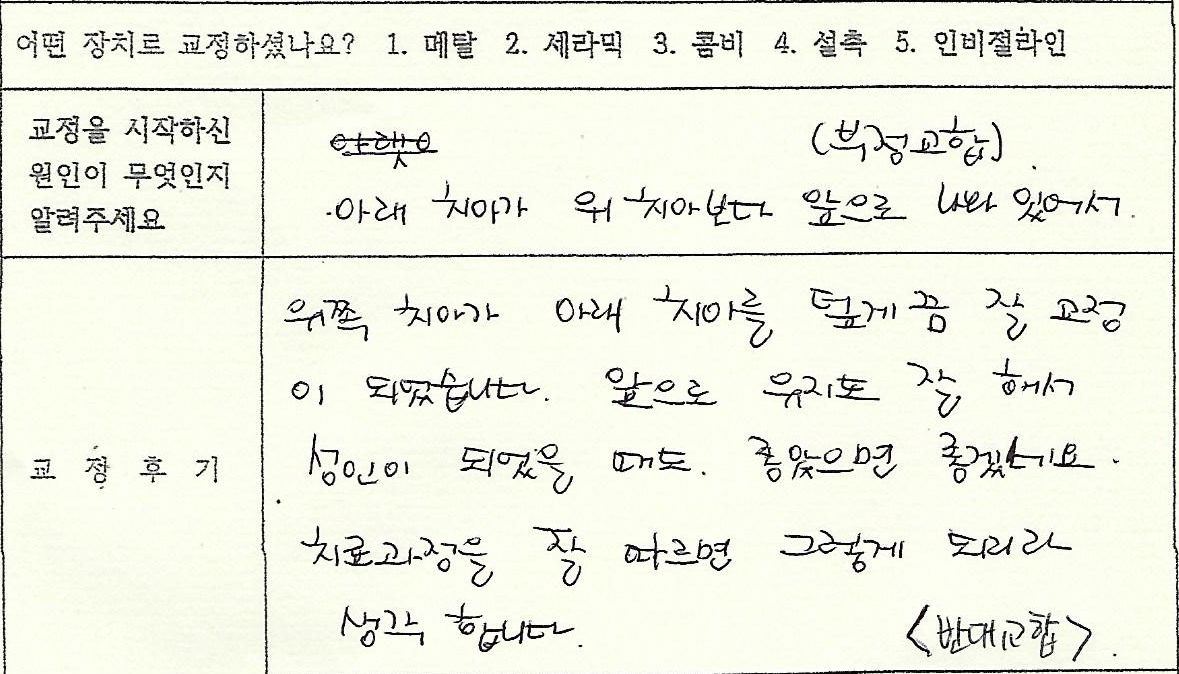 어떤 장치로 교정하셨나요? 1. 메탈 2. 세라믹 3. 콤비 4. 설측 5. 인비절라인
교정을 시작하신
원인이 무엇인지
알려주세요
(부정교합)
·아래 치아가 위 치아보다 앞으로 나와 있어서.
교 정 후 기
위쪽 치아가 아래 치아를 덮게끔 잘 교정
이 되었습니다. 앞으로 유지도 잘 해서
성인이 되었을 때도. 좋았으면 좋겠네요.
치료과정을 잘 따르면 그렇게 되리라
생각 합니다.
<반대교합>.